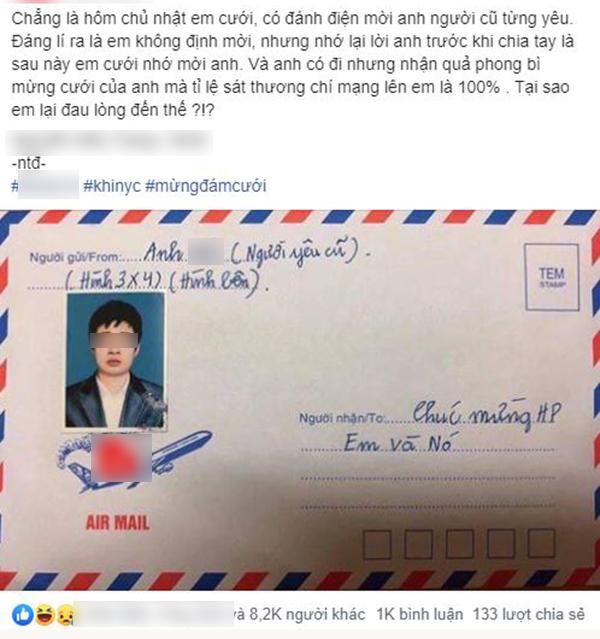 Chẳng là hôm chủ nhật em cưới, có đánh điện mời anh người cũ từng yêu.
Đáng lí ra là em không định mời, nhưng nhớ lại lời anh trước khi chia tay là
sau này em cưới nhớ mời anh. Và anh có đi nhưng nhận quả phong bì
mừng cưới của anh mà tỉ lệ sát thương chí mạng lên em là 100% . Tại sao
em lại đau lòng đến thế ?!?
-ntđ-
# #khinyc #mừngđámcưới
Người gửi/From:.....Anh (Người yêu cũ).
(Hình 3x4) (Hình bên).
TEM
STAMP
Người nhận/To:.....Chúc mừng HP
Em và Nó
AIR MAIL
và 8,2K người khác 1K bình luận 133 lượt chia sẻ